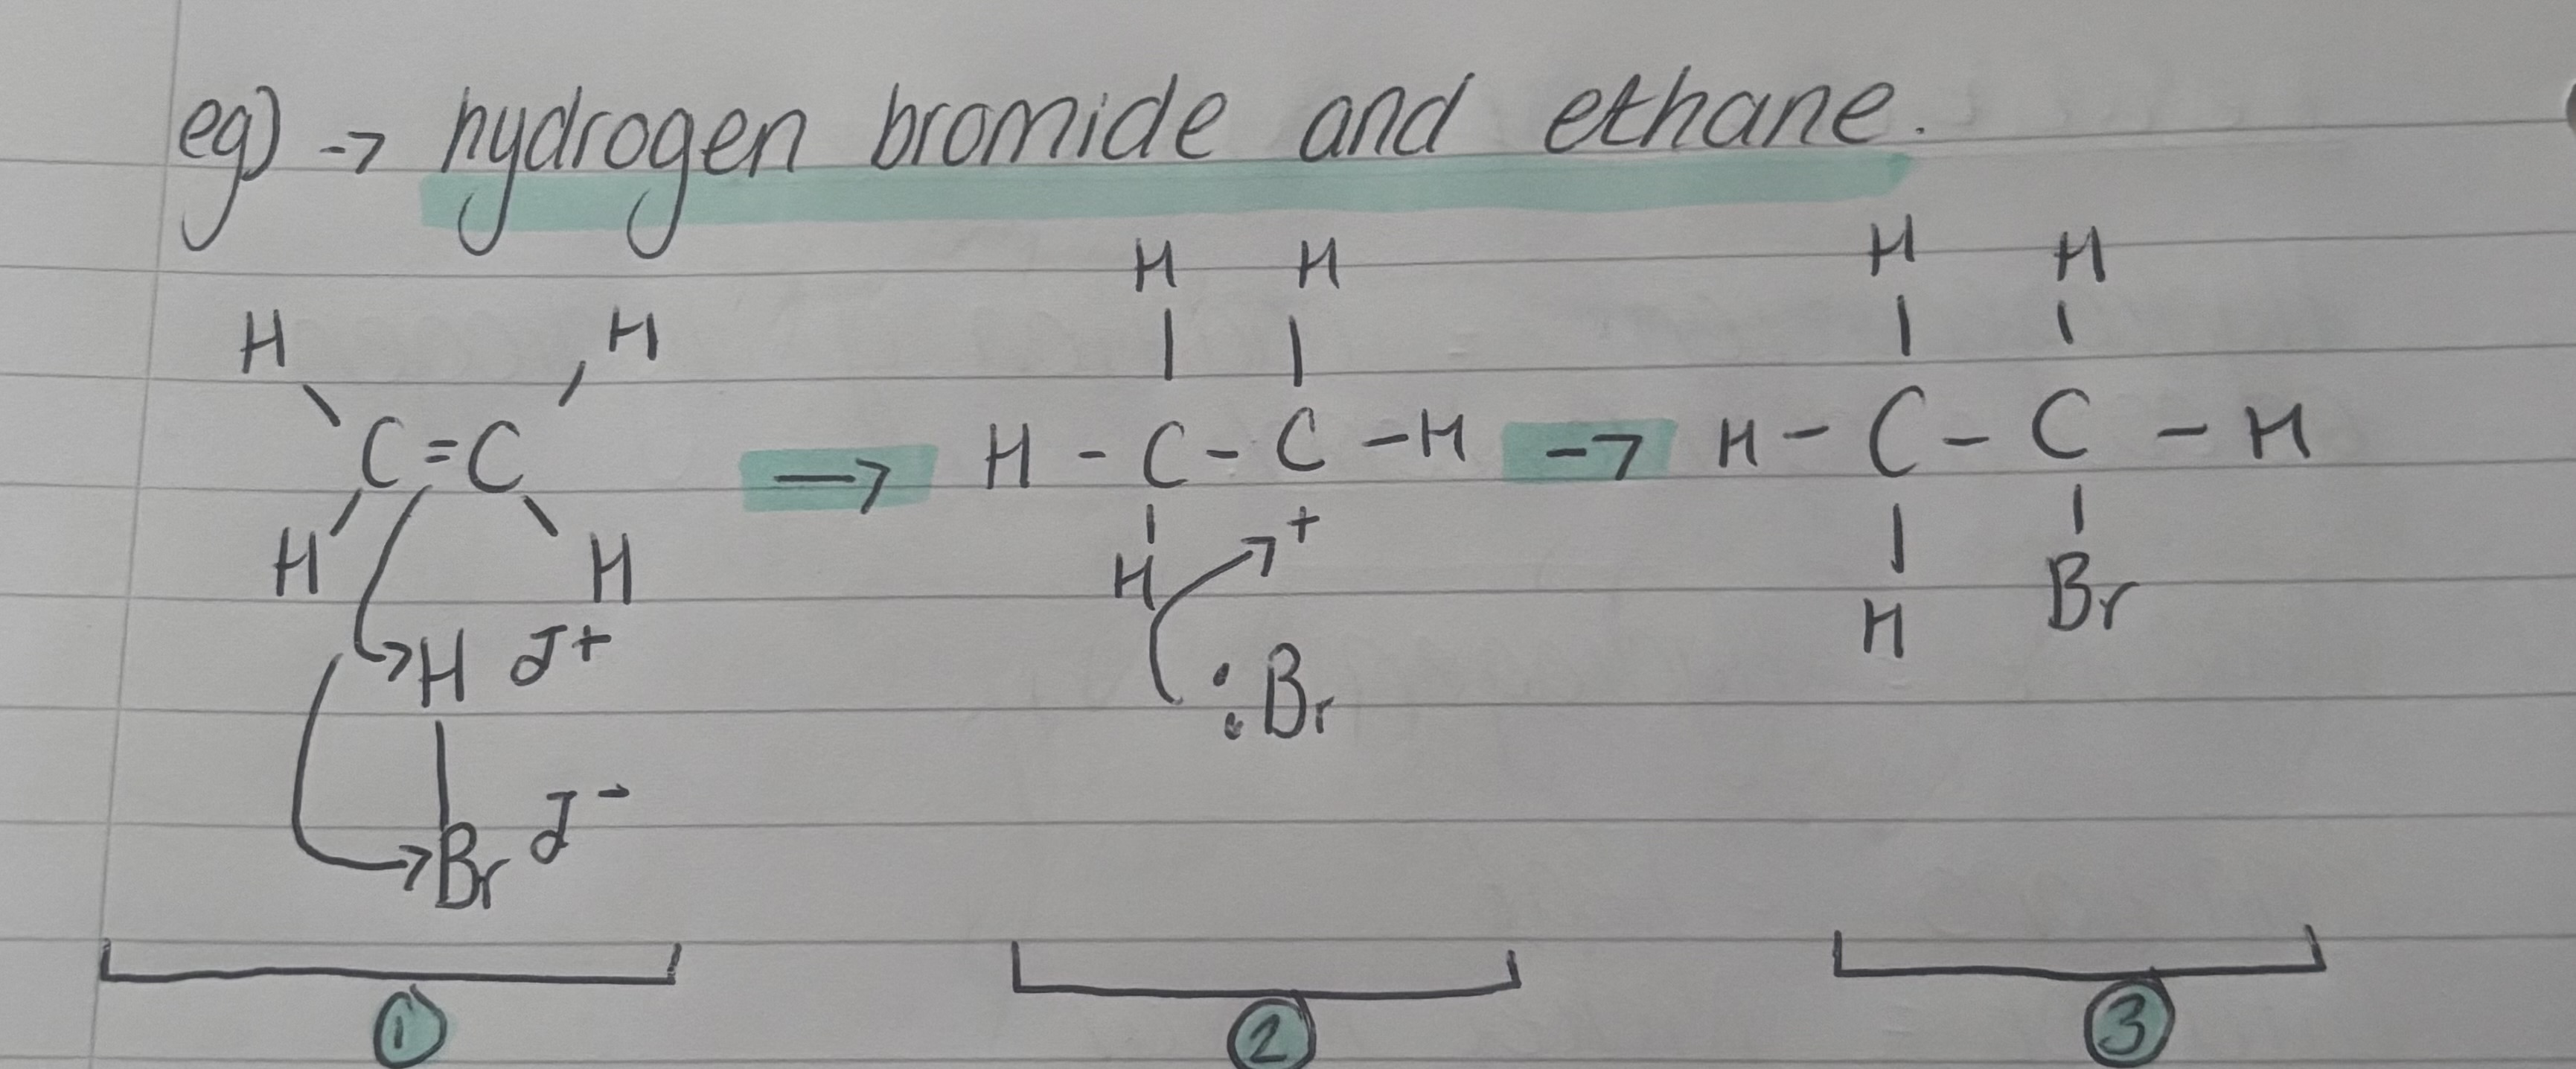 eg) → hydrogen bromide and ethane.
H H H H
H H
C=C → H-C-C-H → H-C-C-H
+
H H H Br
H
H δ+ :Br
Br δ-
① ② ③